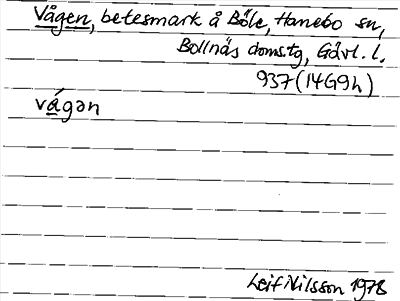 Vågen, betesmark å Böle, Hanebo sn,
Bollnäs domstg, Gävl. l.
937 (14G9h)
vágən
Leif Nilsson 1978